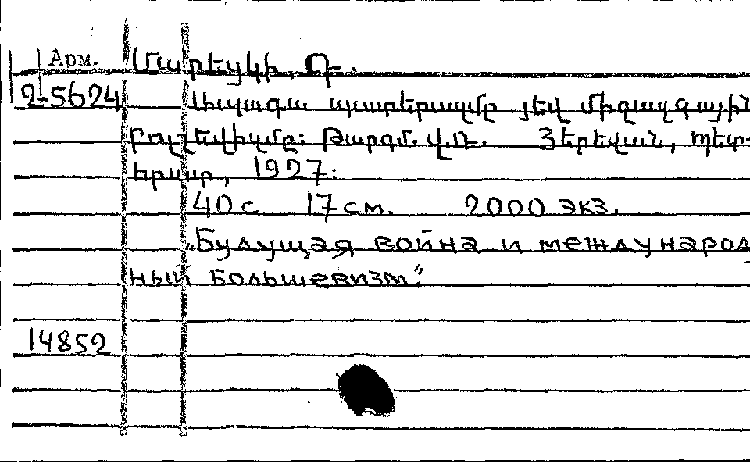 Арм. Մարեցկի, Դ.
2-5624 Ապագա պատերազմը յեվ միջազգային
բոլշեվիզմը: Թարգմ. Վ.Ն. Յերեվան, պետ-
հրատ, 1927:
40 с. 17 см. 2000 экз.
„Будущая война и международ
ный большевизм"
14852